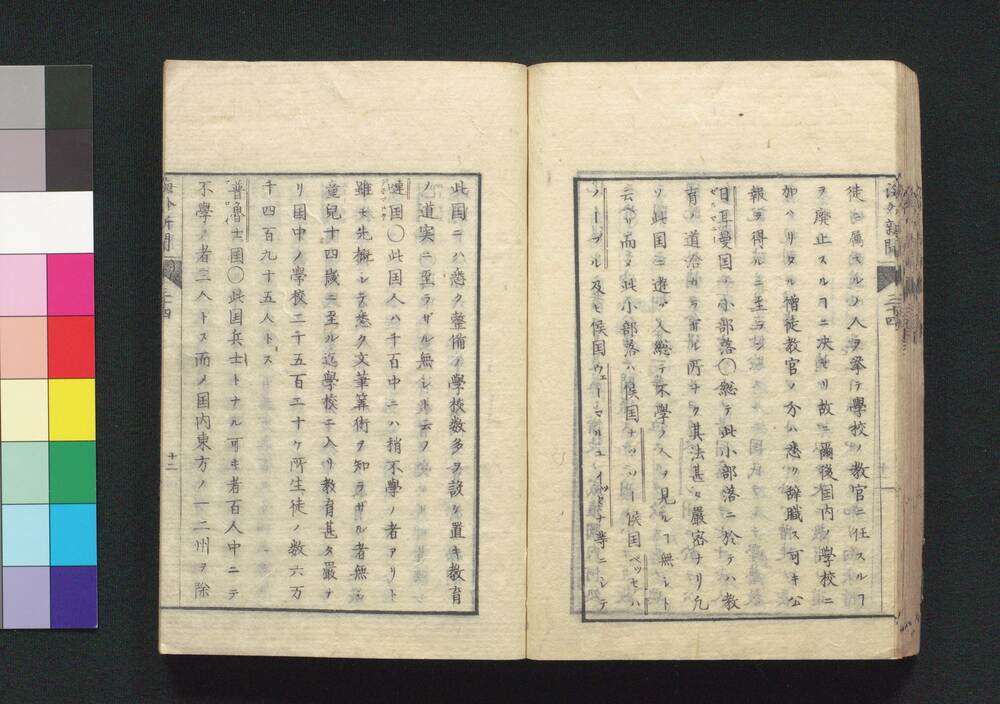 海外新聞
三十四
徒ニ屬スルノ人ヲ擧テ學校ノ教官ニ任スルヿ
ヲ廢止スルヿニ决セリ故ニ爾後国内ノ學校ニ
加ハリタル僧徒教官ノ分ハ悉ク辞職ス可キ公
報ヲ得ルニ至
日耳曼国ノ小部落〇総テ此小部落ニ於テハ教
育ノ道洽カラザル所ナク其法甚タ嚴密ナリ凢
ソ此国ニ遊ヒ入総テ不學ノ人ヲ見ルヿ無シト
云ヘリ而メ此小部落ハ候国ナッソー候国ベッセハ
ノーブル及ヒ候国ウェーマル
等ニシテ
此国ニハ悉ク整備ノ學校数多ヲ設ケ置キ教育
ノ道実ニ至ラザル無シト云フ
嗹国〇此国人ハ千百中ニハ稍不學ノ者アリト
雖𪜈先概シテ悉ク文筆筭術ヲ知ラザル者無シ
童児十四歳ニ至ル迄學校ニ入リ教育甚タ嚴ナ
リ国中ノ學校二千五百二十ケ所生徒ノ数六万
千四百九十五人トス
普魯士国〇此国兵士トナル可キ者百人中ニテ
不學ノ者三人トス而メ国内東方ノ一二州ヲ除
海外新聞
三十四
十二